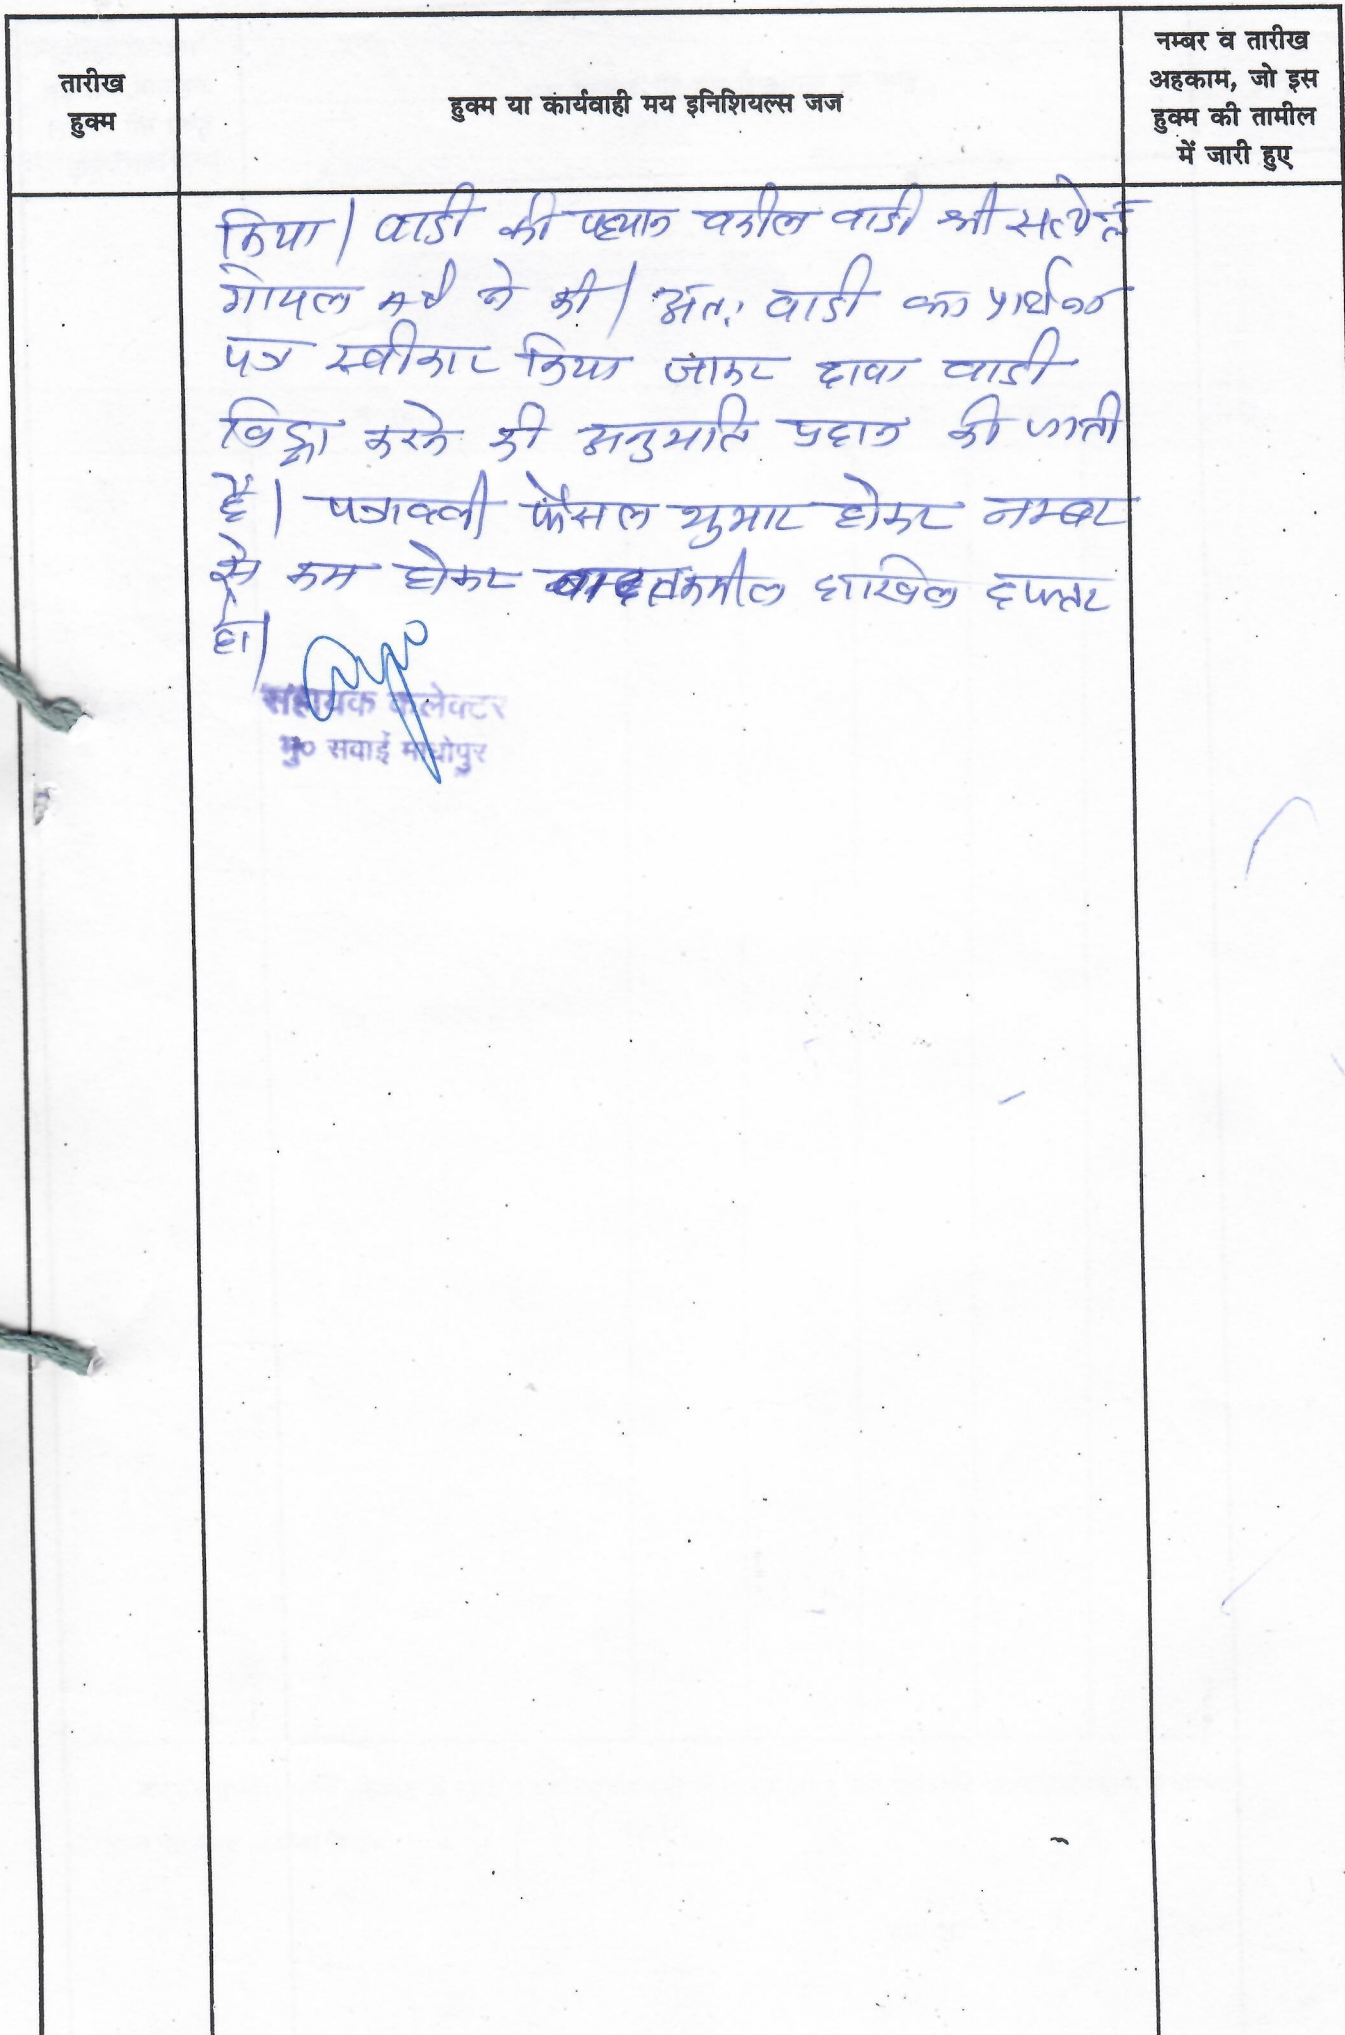 तारीख
हुक्म
हुक्म या कार्यवाही मय इनिशियल्स जज
नम्बर व तारीख
अहकाम, जो इस
हुक्म की तामील
में जारी हुए
किया। वादी की पहचान वकील वादी श्री
गोयल ने की। अतः वादी का प्रार्थना
पत्र स्वीकार किया जाकर दावा वादी
विड्रा करने की अनुमति प्रदान की जाती
है। पत्रावली फैसल शुमार होकर नम्बर
से कम होकर बाद तकमील दाखिल दफ्तर
हो।
सहायक कलेक्टर
मु० सवाई माधोपुर